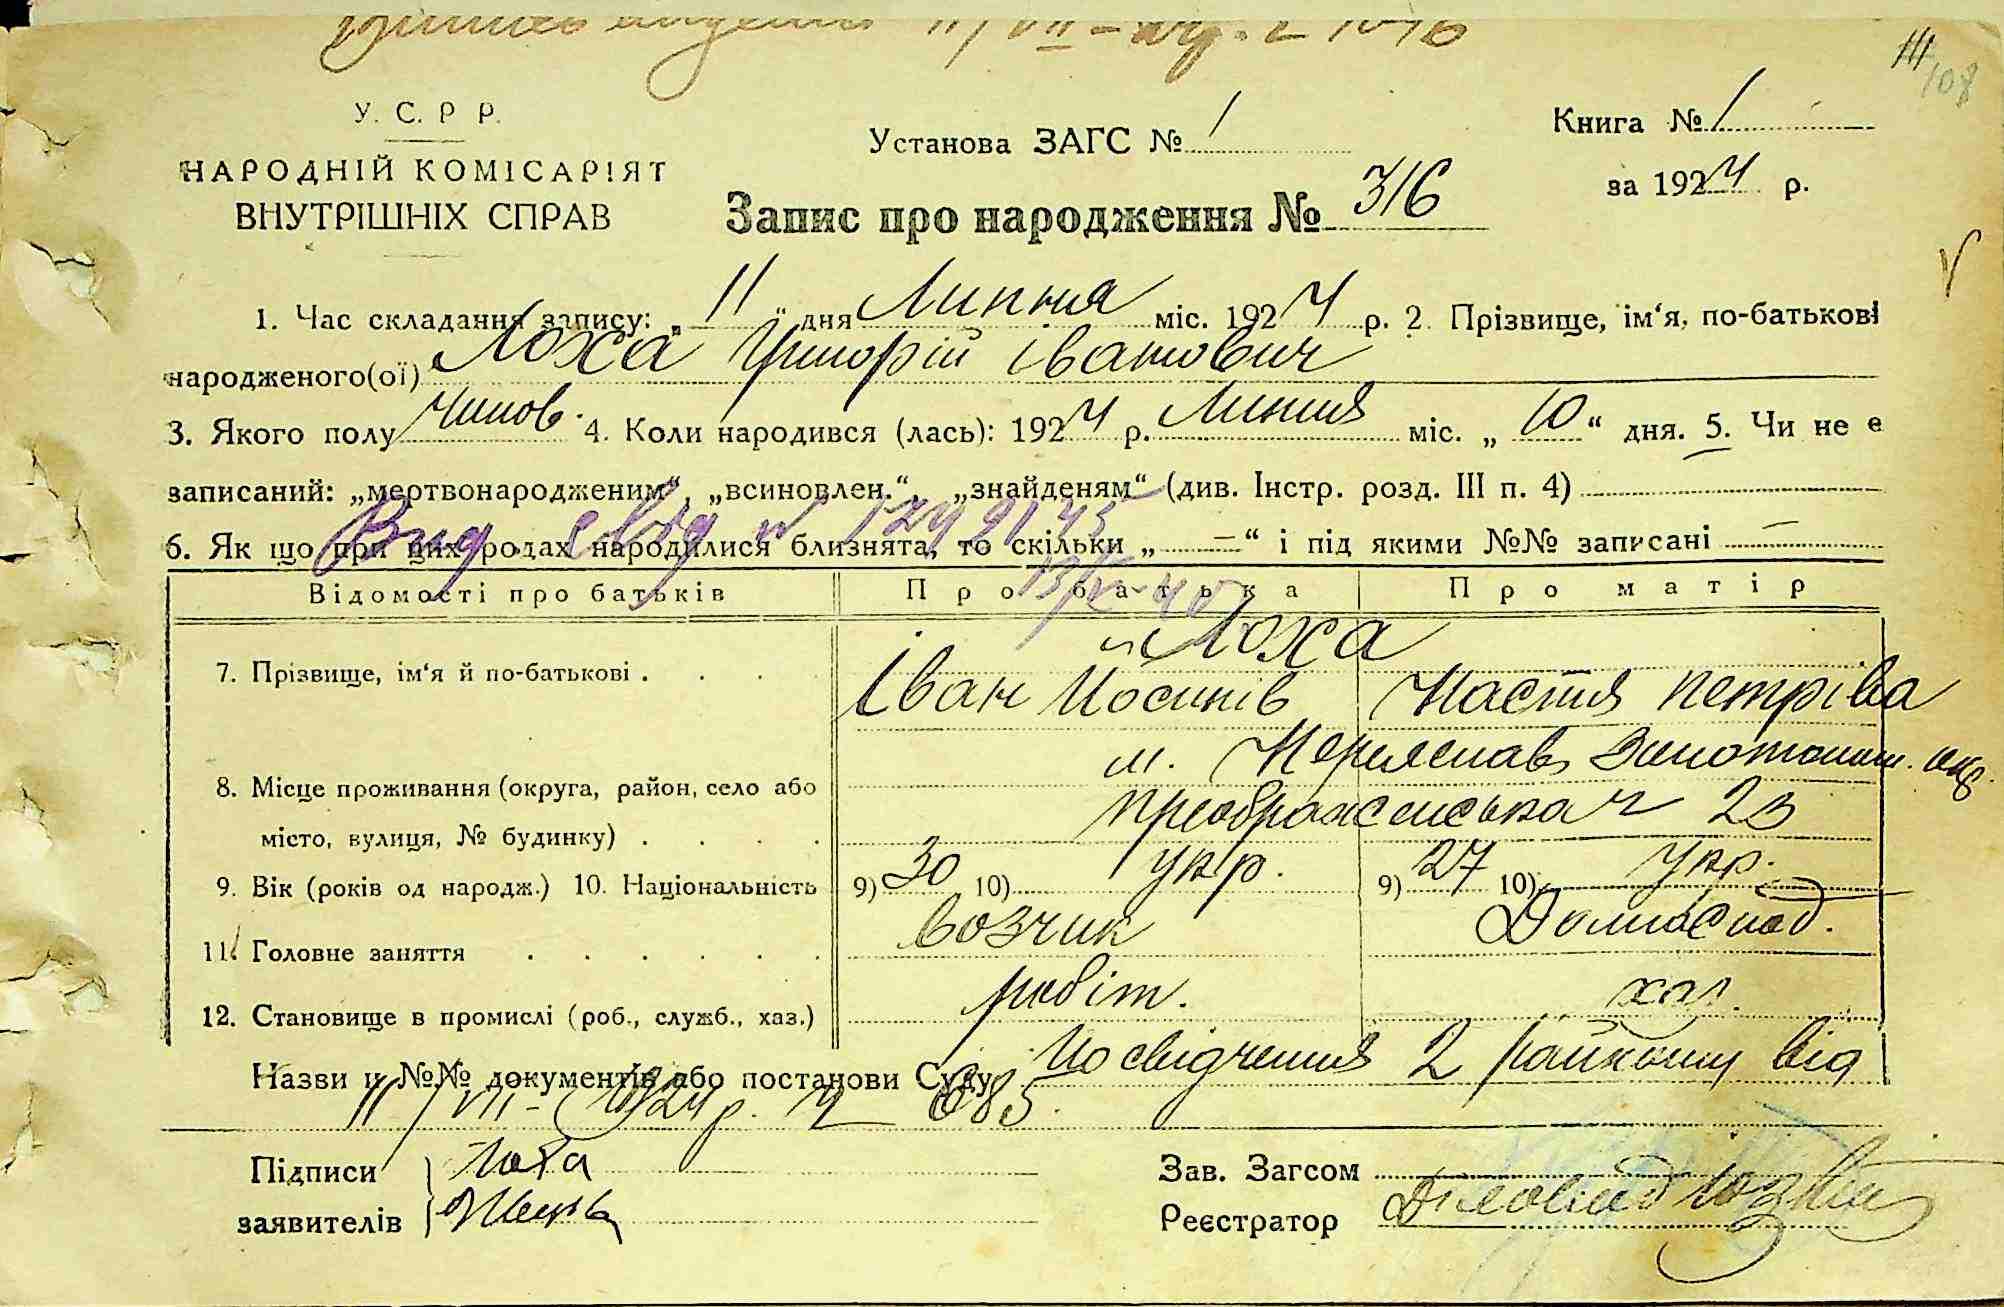 111
108
У. С. Р Р.
НАРОДНІЙ КОМІСАРІЯТ
ВНУТРІШНІХ СПРАВ
Установа ЗАГС № 1
Книга № 1
за 1924 р.
Запис про народження № 316
1. Час складання запису: „11“ дня Липня міс. 1924 р. 2. Прізвище, ім‘я, по-батькові
народженого(ої) Лоха Григорій Іванович
3. Якого полу Чолов. 4. Коли народився (лась): 1924 р. Липня міс. „10“ дня. 5. Чи не є
записаний: „мертвонародженим“, „всиновлен.“, „знайденям“ (див. Інстр. розд. III п. 4)
Вид свід №
6. Як що при цих родах народилися близнята, то скільки „ — “ і під якими №№ записані —
Відомості про батьків Про батька Про матір
Лоха
7. Прізвище, ім‘я й по-батькові . . . . Іван Йосипів Настя Петрівна
м. Переяслав Золотоніш. окр.
8. Місце проживання (округа, район, село або
місто, вулиця, № будинку) . . . . Преображенська 23
9. Вік (років од народж.) 10. Національність 9) 30 10) укр. 9) 27 10) укр.
11. Головне заняття . . . . . . Возчик Домгоспод.
12. Становище в промислі (роб., служб., хаз.) робіт. хаз.
Назви и №№ документів або постанови Суду Посвідчення 2 райкому від
11/VII-1924 р. № 685.
Підписи Лоха
заявителів
Зав. Загсом
Реєстратор